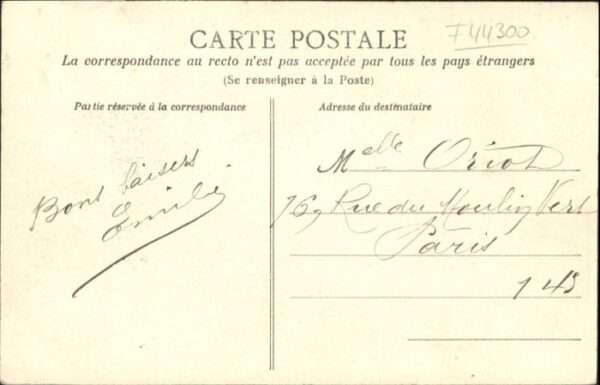 CARTE POSTALE
F44300
La correspondance au recto n'est pas acceptée par tous les pays étrangers
(Se renseigner à la Poste)
Partie réservée à la correspondance
Adresse du destinataire
Bons baisers
Emilie
Melle Oriot
76, Rue du Moulin Vert
Paris
14S